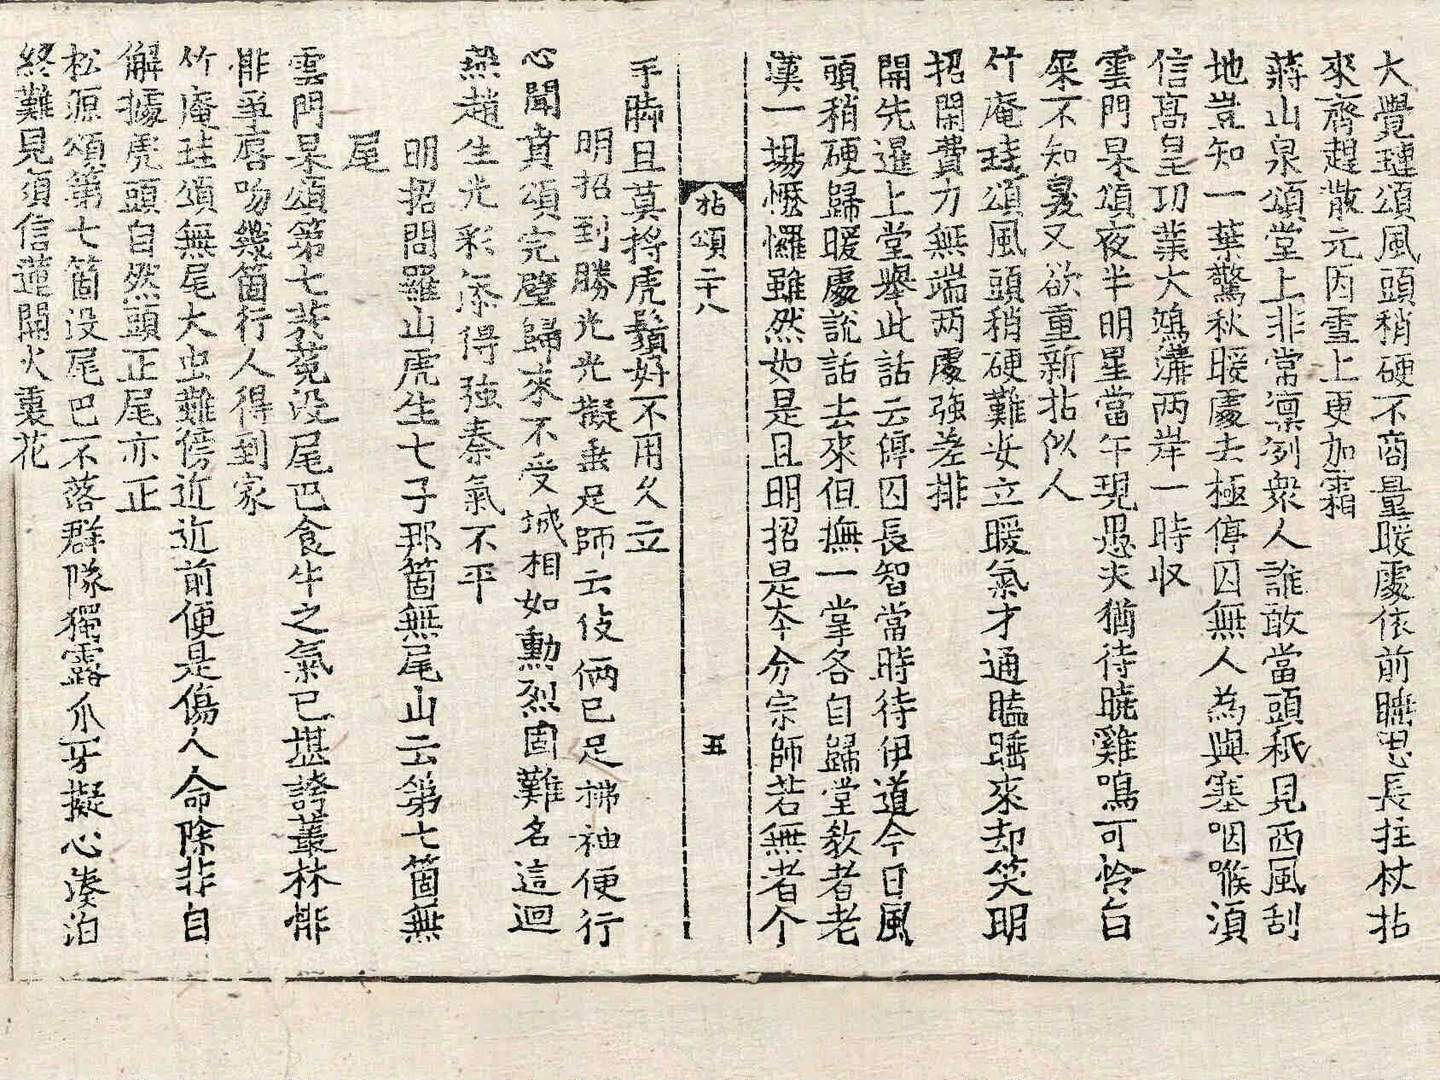 大覺璉頌風頭稍硬不商量暖處依前瞌睡長拄杖拈
來齊趕散元因雪上更加霜
蔣山泉頌堂上非常凛冽衆人誰敢當頭秖見西風刮
地豈知一葉驚秋暖處去極停囚無人為與塞咽喉湏
信髙皇功業大鴻溝两岸一時収
雲門杲頌夜半明星當午現愚夫猶待曉雞鳴可怜自
屎不知臭又欲重新拈似人
竹庵珪頌風頭稍硬難安立暖氣才通瞌睡來却笑明
招閑費力無端两處強差排
開先暹上堂舉此話云停囚長智當時待伊道今日風
頭稍硬歸暖處說話去來但撫一掌各自歸堂敎者老
漢一場懡㦬雖然如是且明招是本分宗師若無者个
拈頌二十八
五
手脚且莫捋虎鬚好不用久立
明招到勝光光擬垂足師云伎倆已足拂袖便行
心聞賁頌完璧歸來不受城相如勳烈固難名這迴
燕趙生光彩添得強秦氣不平
明招問羅山虎生七子那箇無尾山云第七箇無
尾
雲門杲頌第七菸菟没尾巴食牛之氣已堪誇叢林俳
俳爭唇吻幾箇行人得到家
竹庵珪頌無尾大虫難傍近近前便是傷人命除非自
解據虎頭自然頭正尾亦正
松源頌第七箇没尾巴不落群隊獨露爪牙擬心湊泊
終難見須信蓮開火裏花